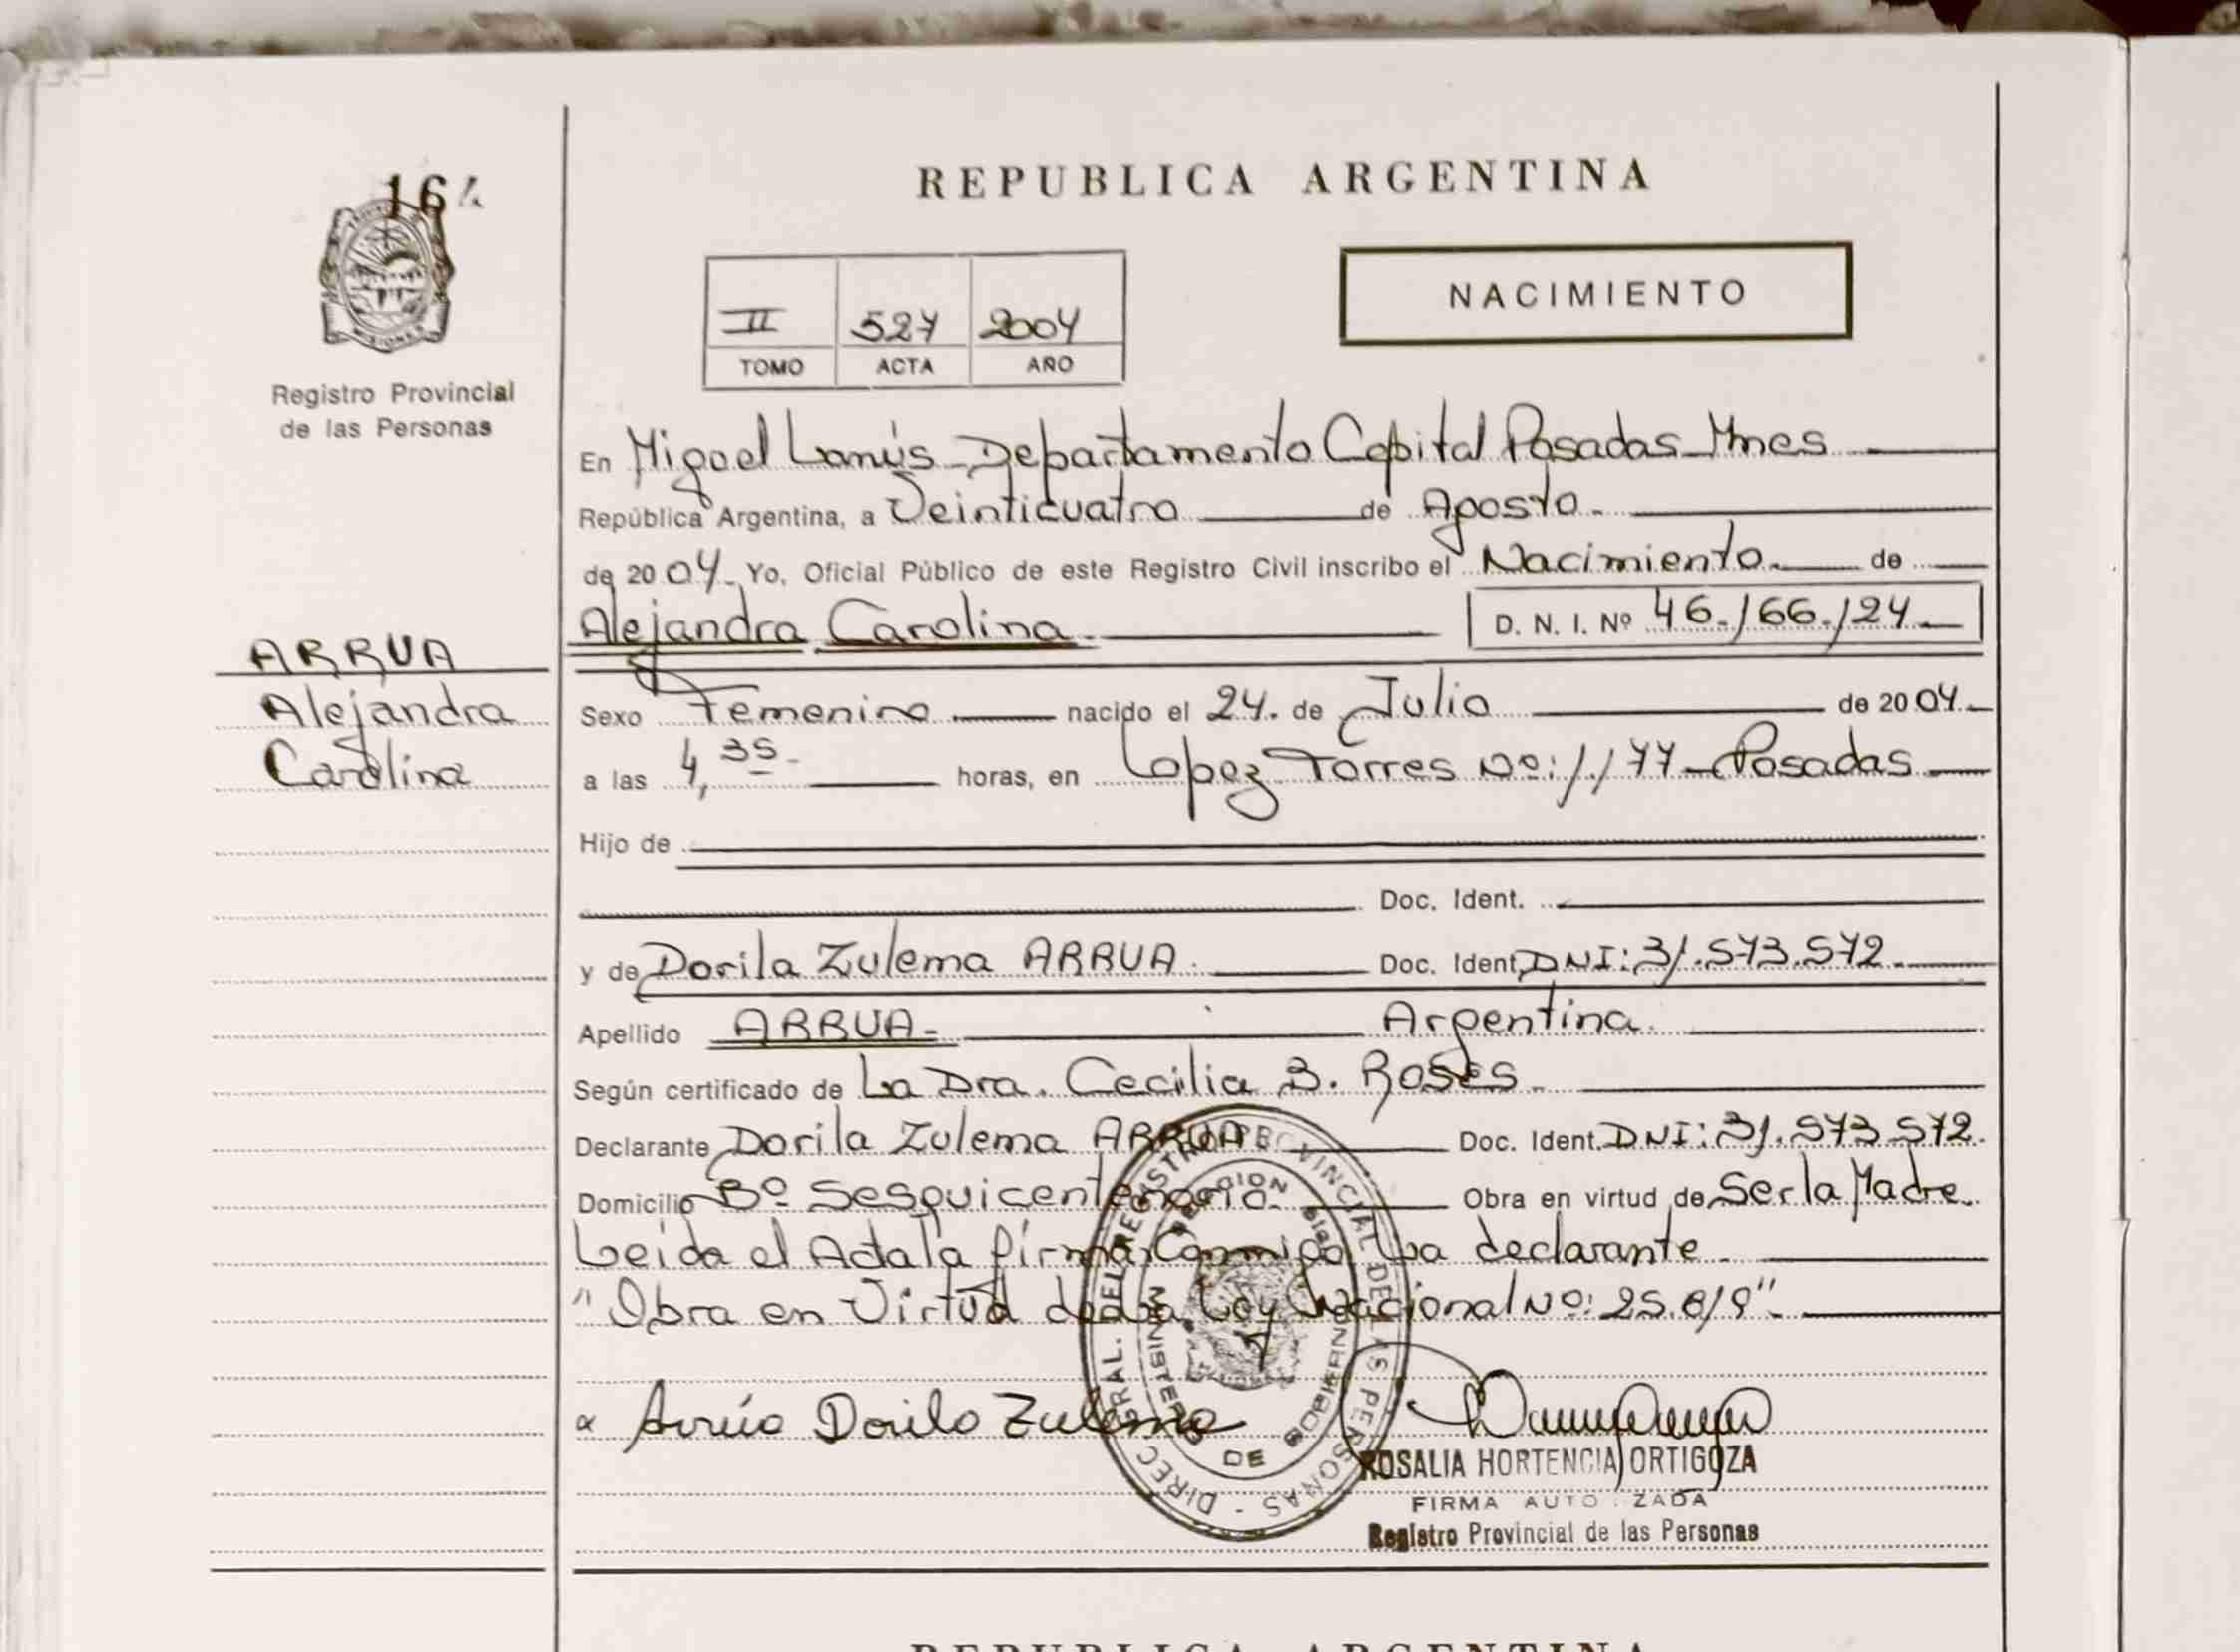 164
REPUBLICA ARGENTINA
NACIMIENTO
II 527 2004
TOMO ACTA AÑO
Registro Provincial
de las Personas
En Miguel Lanús Departamento Capital Posadas Mnes
República Argentina, a Veinticuatro de Agosto.
de 2004 Yo, Oficial Público de este Registro Civil inscribo el Nacimiento de
Alejandra Carolina D. N. I. Nº 46.166.124
ARRUA
Alejandra
Carolina
Sexo Femenino nacido el 24. de Julio de 2004
a las 4,35 horas, en Lopez Torres Nº: 1.177 - Posadas
Hijo de
Doc. Ident.
y de Dorila Zulema ARRUA. Doc. Ident. DNI: 31.573.572
Apellido ARRUA- Argentina.
Según certificado de La Dra. Cecilia B. Roses
Declarante Dorila Zulema ARRUA Doc. Ident. DNI: 31.573.572
Domicilio Bº Sesquicentenario. Obra en virtud de Ser la Madre
Leida el Acta la firma Conmigo La declarante
"Obra en Virtud de la Ley Nacional Nº: 25.819"
Arrúa Dorila Zulema
DIREC. GRAL. DEL REGISTRO PROVINCIAL DE LAS PERSONAS
MINISTERIO DE GOBIERNO
ROSALIA HORTENCIA ORTIGOZA
FIRMA AUTO ZADA
Registro Provincial de las Personas
REPUBLICA ARGENTINA